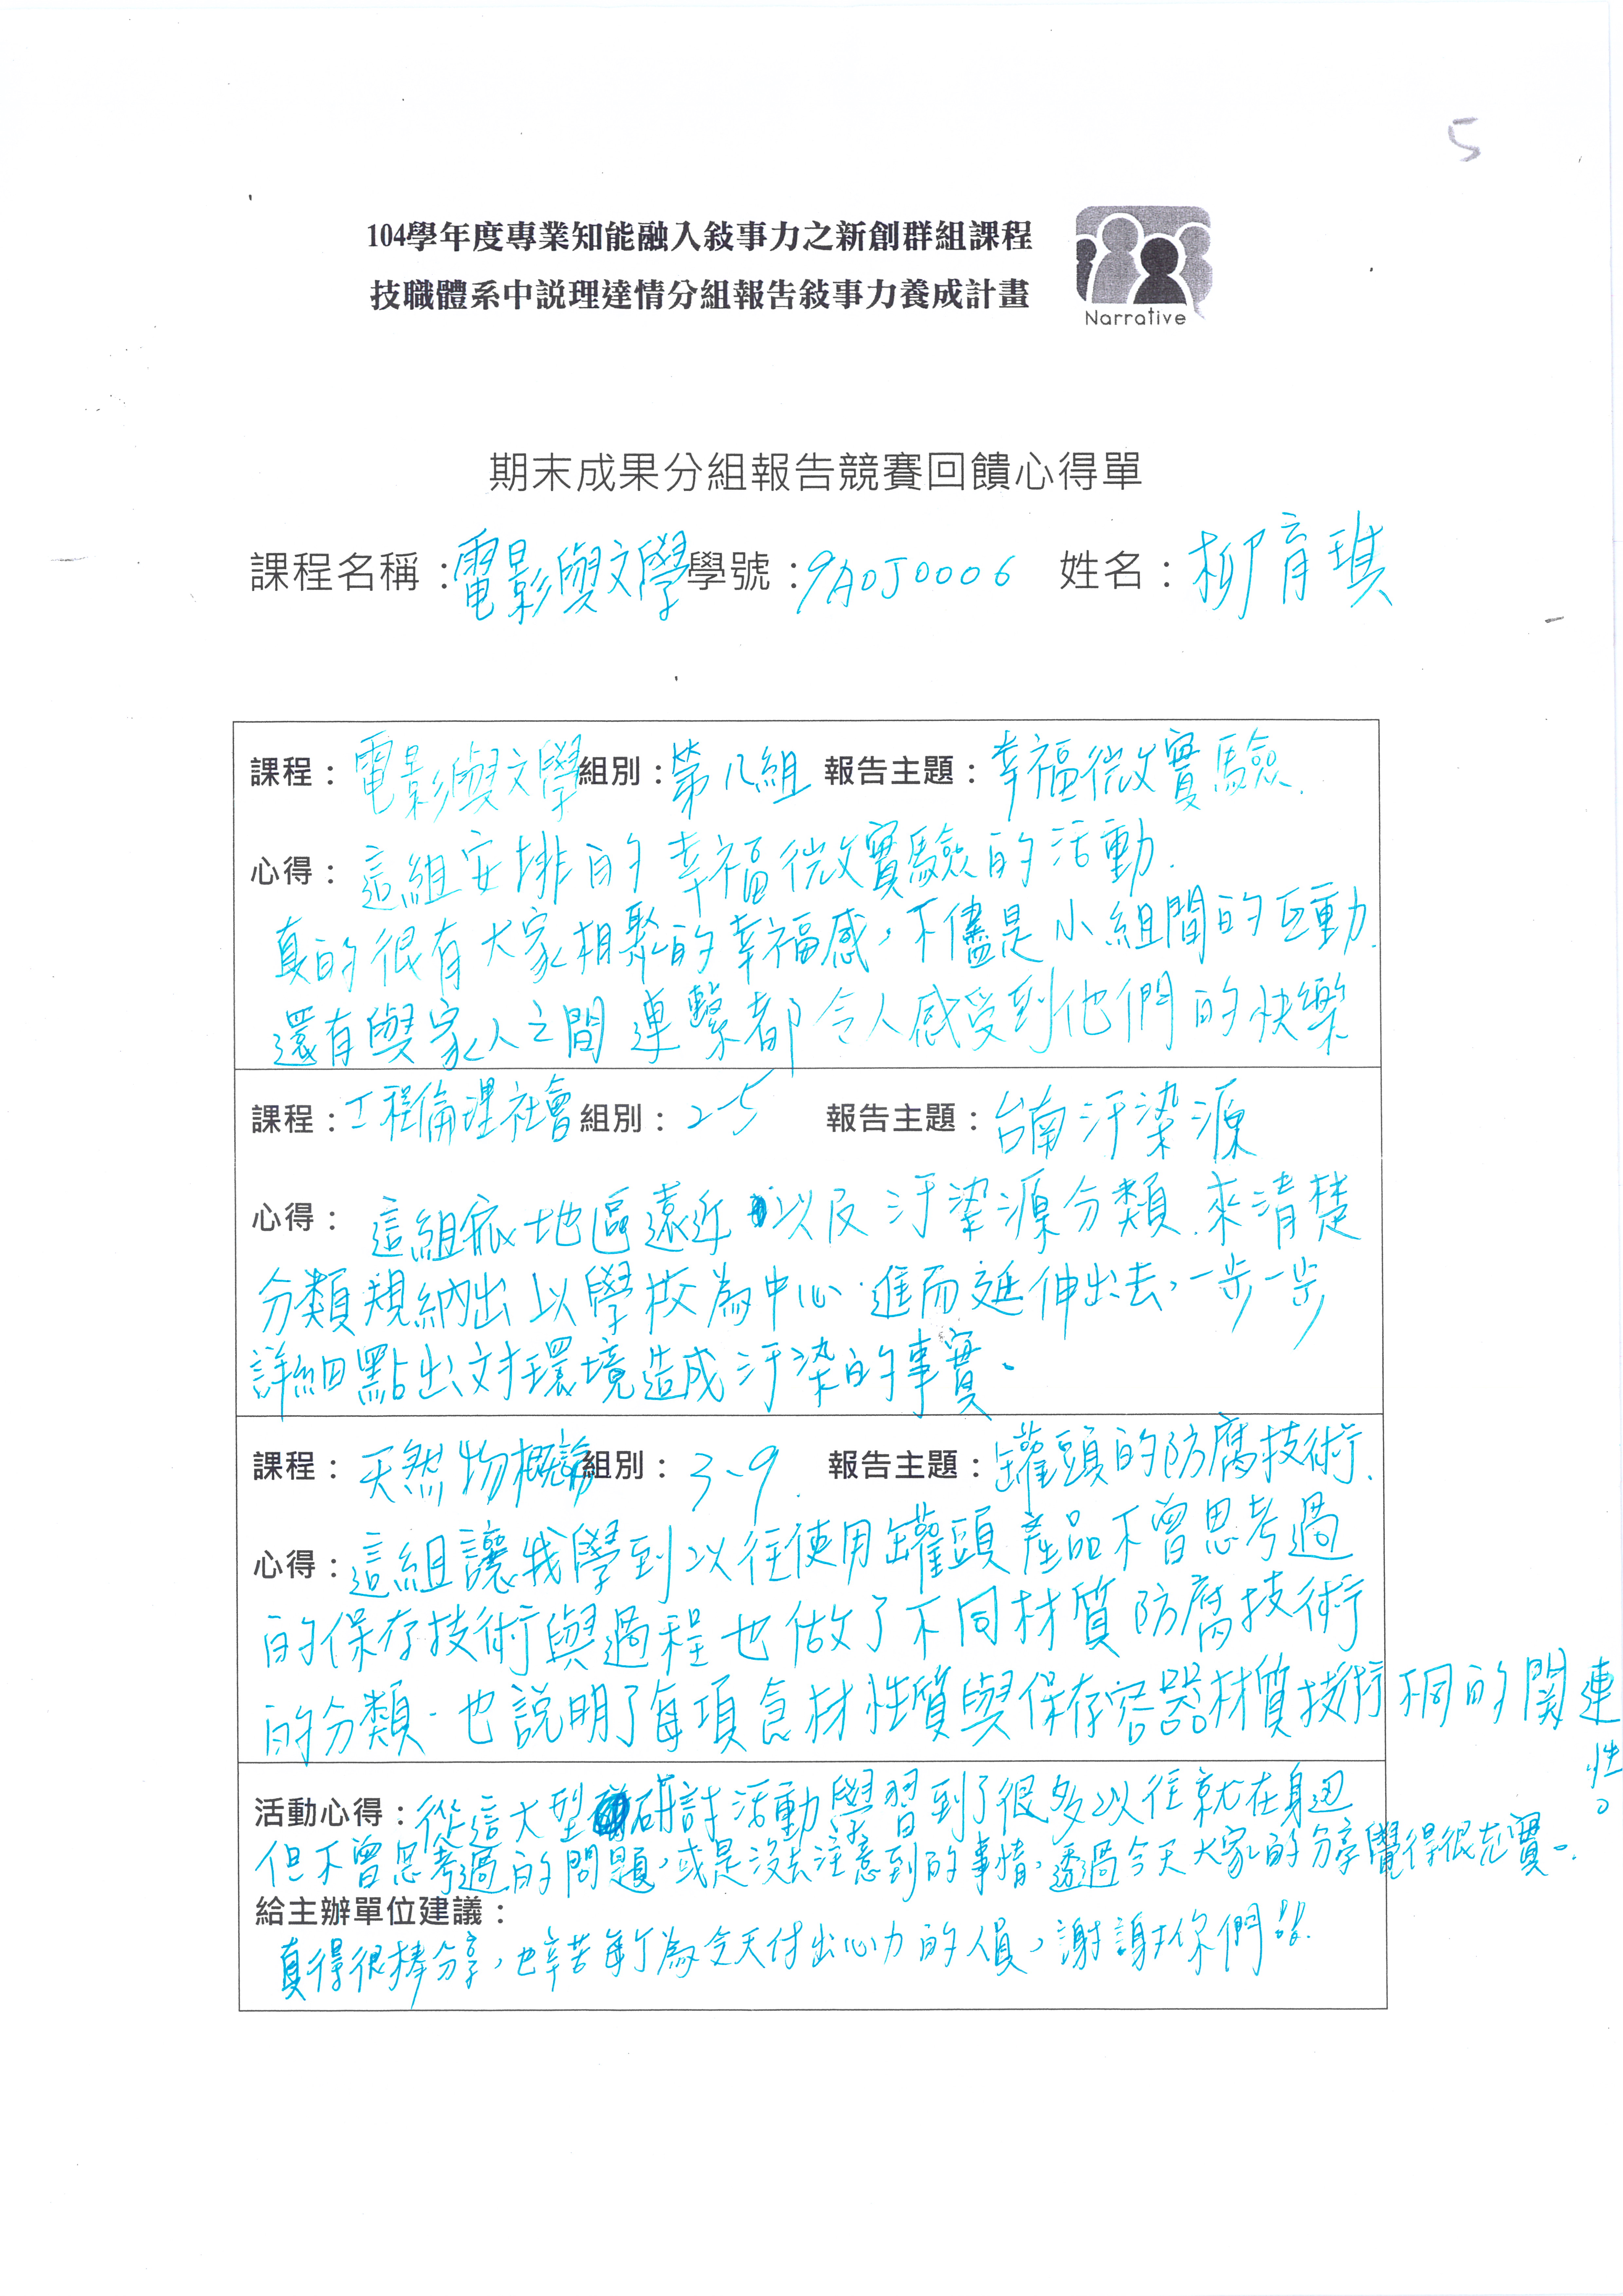 5
104學年度專業知能融入敍事力之新創群組課程
技職體系中說理達情分組報告敍事力養成計畫
Narrative
期末成果分組報告競賽回饋心得單
課程名稱：電影與文學 學號：9A0J0006 姓名：柳育琪
課程：電影與文學 組別：第八組 報告主題：幸福微實驗.
心得：這組安排的幸福微實驗的活動.
真的很有大家相聚的幸福感，不儘是小組間的互動.
還有與家人之間連繫都令人感受到他們的快樂
課程：工程倫理社會 組別：2-5 報告主題：台南汙染源
心得：這組依地區遠近以及汙染源分類.來清楚
分類規納出以學校為中心.進而延伸出去，一步一步
詳細點出對環境造成汙染的事實。
課程：天然物概論 組別：3-9. 報告主題：罐頭的防腐技術.
心得：這組讓我學到以往使用罐頭產品不曾思考過
的保存技術與過程也做了不同材質防腐技術
的分類.也說明了每項食材性質與保存容器材質技術不同的關連
性。
活動心得：從這大型研討活動學習到了很多以往就在身边
但不曾思考過的問題，或是沒去注意到的事情，透過今天大家的分享覺得很充實。
給主辦單位建議：
真得很棒分享，也辛苦每个為今天付出心力的人員，謝謝你們!!